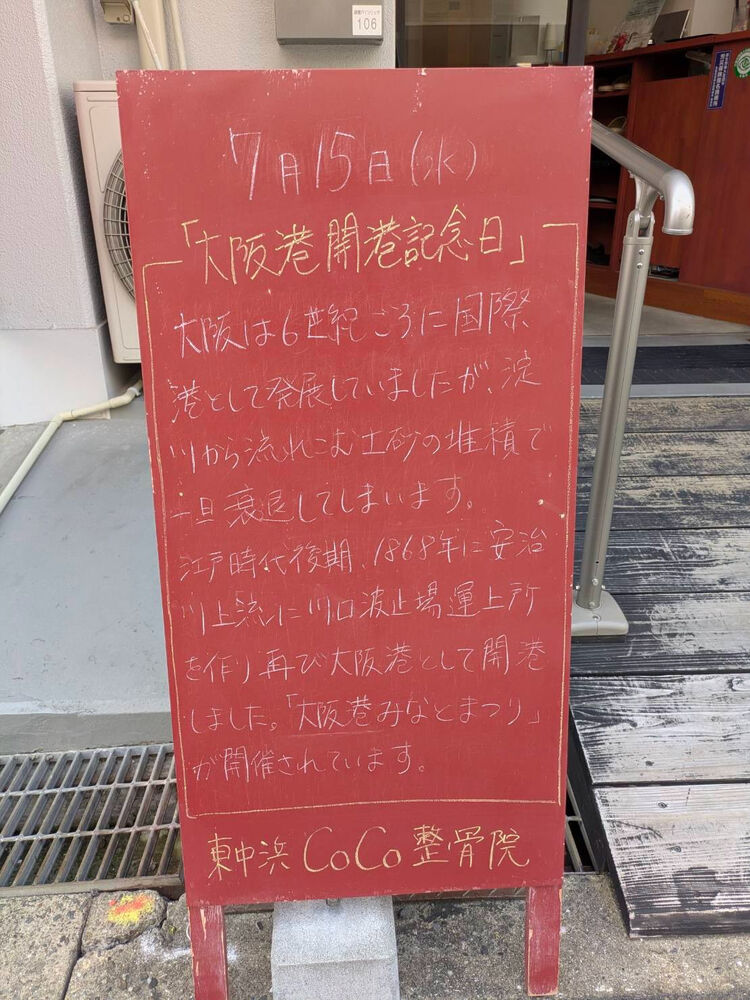 106
7月15日(水)
「大阪港開港記念日」
大阪は6世紀ごろに国際
港として発展していましたが、淀
川から流れこむ土砂の堆積で
一旦衰退してしまいます。
江戸時代後期、1868年に安治
川上流に川口波止場運上所
を作り再び大阪港として開港
しました。「大阪港みなとまつり」
が開催されています。
東中浜 CoCo 整骨院